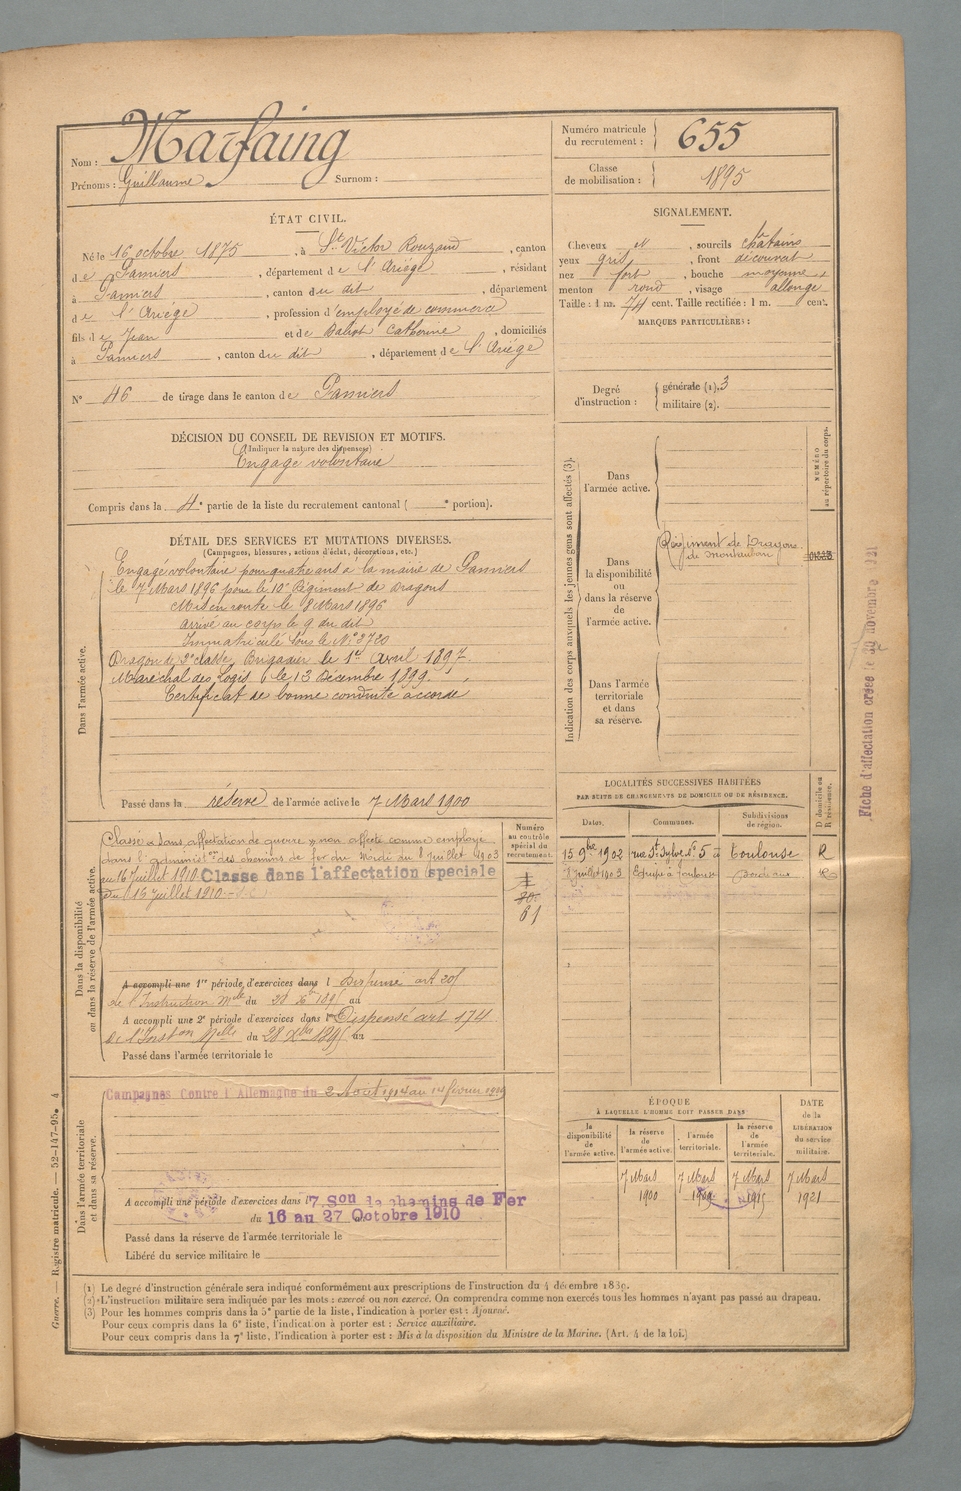 Nom : Marfaing
Prénoms : Guillaume Surnom :
Numéro matricule du recrutement : 655
Classe de mobilisation : 1895
ÉTAT CIVIL.
Né le 16 octobre 1875, à St Victor Rouzaud, canton
de Pamiers, département de l'Ariège, résidant
à Pamiers, canton du dit, département
de l'Ariège, profession d'employé de commerce
fils de Jean et de Catherine, domiciliés
à Pamiers, canton du dit, département de l'Ariège
N° 46 de tirage dans le canton de Pamiers
SIGNALEMENT.
Cheveux et, sourcils châtains
yeux gris, front découvert
nez fort, bouche moyenne
menton rond, visage allongé
Taille : 1 m. 74 cent. Taille rectifiée : 1 m. cent.
MARQUES PARTICULIÈRES :
Degré d'instruction : générale (1). 3
militaire (2).
DÉCISION DU CONSEIL DE REVISION ET MOTIFS.
(Indiquer la nature des dispenses)
Engagé volontaire
Compris dans la 4e partie de la liste du recrutement cantonal ( e portion).
DÉTAIL DES SERVICES ET MUTATIONS DIVERSES.
(Campagnes, blessures, actions d'éclat, décorations, etc.)
Dans l'armée active.
Engagé volontaire pour quatre ans à la mairie de Pamiers
le 7 Mars 1896 pour le 10e Régiment de Dragons
Mis en route le 8 Mars 1896
arrivé au corps le 9 du dit
Immatriculé sous le N° 3720
Dragon de 2e classe, Brigadier le 1er Avril 1897.
Maréchal des Logis le 13 Décembre 1899.
Certificat de bonne conduite accordé
Passé dans la réserve de l'armée active le 7 Mars 1900
Indication des corps auxquels les jeunes gens sont affectés (3).
NUMÉRO au répertoire du corps.
Dans l'armée active.
Dans la disponibilité ou dans la réserve de l'armée active.
Régiment de Dragons
de Montauban
Dans l'armée territoriale et dans sa réserve.
Fiche d'affectation créée le 30 novembre 1921
Dans la disponibilité ou dans la réserve de l'armée active.
Classé dans affectation de guerre non affecté comme employé
dans l'administ.on des chemins de fer du Midi du 8 Juillet 1903
au 16 Juillet 1910 Classé dans l'affectation spéciale
du 16 Juillet 1910
Numéro au contrôle spécial du recrutement.
61
A accompli une 1re période d'exercices dans l Dispensé art 205
de l'Instruction Melle du 28 Xbre 1895 au
A accompli une 2e période d'exercices dans l Dispensé art 174
de l'Inst.on Melle du 28 Xbre 1895 au
Passé dans l'armée territoriale le
LOCALITÉS SUCCESSIVES HABITÉES
PAR SUITE DE CHANGEMENTS DE DOMICILE OU DE RÉSIDENCE.
Dates. Communes. Subdivisions de région. D domicile ou R résidence.
15 9bre 1902 rue St Sylve n° 5 à Toulouse R
8 Juillet 1903 Equipe à Toulouse Bordeaux R
Dans l'armée territoriale et dans sa réserve.
Campagnes Contre l'Allemagne du 2 Août 1914 au 1er février 1919
A accompli une période d'exercices dans l 7. Son de chemins de Fer
du 16 au 27 Octobre 1910
Passé dans la réserve de l'armée territoriale le
Libéré du service militaire le
ÉPOQUE
À LAQUELLE L'HOMME DOIT PASSER DANS
la disponibilité de l'armée active.
la réserve de l'armée active.
l'armée territoriale.
la réserve de l'armée territoriale.
DATE de la LIBÉRATION du service militaire.
7 Mars 1900
7 Mars 1909
7 Mars 1915
7 Mars 1921
(1) Le degré d'instruction générale sera indiqué conformément aux prescriptions de l'instruction du 4 décembre 1889.
(2) L'instruction militaire sera indiquée par les mots : exercé ou non exercé. On comprendra comme non exercés tous les hommes n'ayant pas passé au drapeau.
(3) Pour les hommes compris dans la 5e partie de la liste, l'indication à porter est : Ajourné.
Pour ceux compris dans la 6e liste, l'indication à porter est : Service auxiliaire.
Pour ceux compris dans la 7e liste, l'indication à porter est : Mis à la disposition du Ministre de la Marine. (Art. 4 de la loi.)
Guerre. — Registre matricule. — 52-147-95. 4